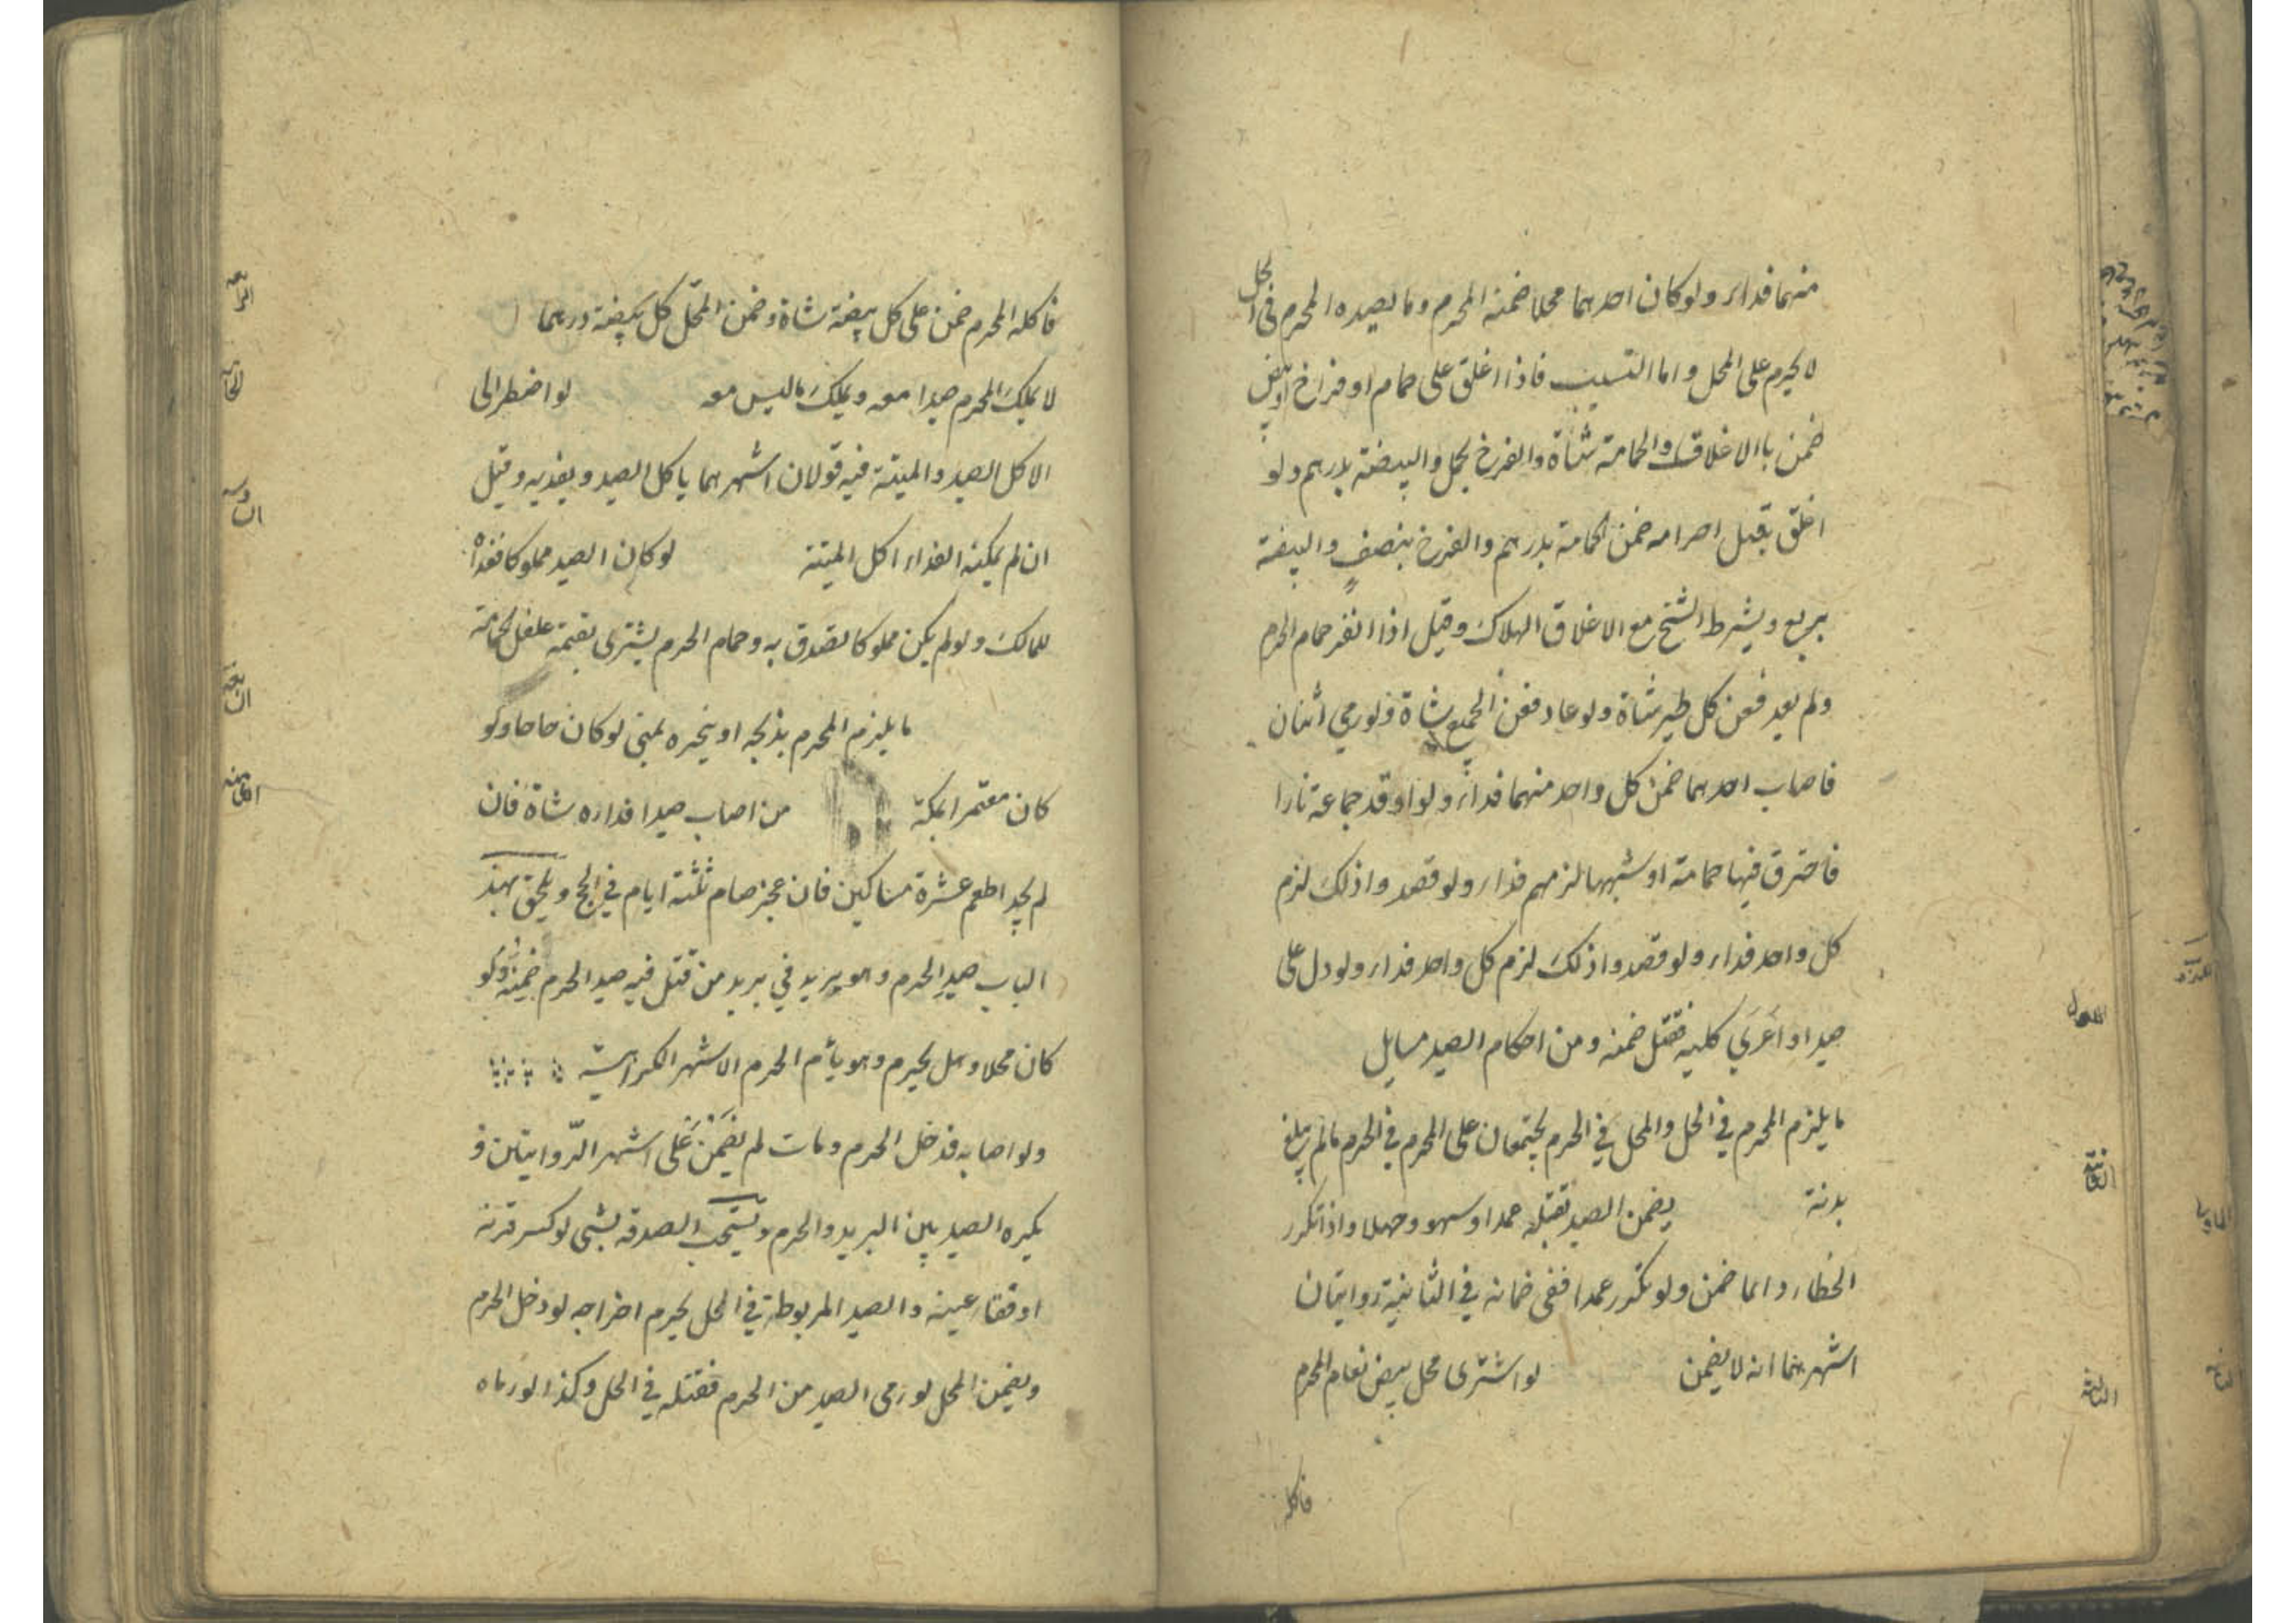 منهما فداء ولو كان احدهما محلا ضمنه المحرم وما يصيده المحرم في الحل
لا يحرم على المحل واما التسبيب فاذا اغلق على حمام او فراخ او بيض
ضمن باالاغلاق والحمامة شاة والفرخ بحمل والبيضة بدرهم ولو
اغلق قبل احرامه ضمن الحمامة بدرهم والفرخ بنصف والبيضة
بربع ويشرط الشيخ مع الاغلاق الهلاك وقيل اذا انفر حمام الحرم
ولم يعد فعن كل طير شاة ولو عاد فعن الجميع شاة ولو رمى اثنان
فاصاب احدهما ضمن كل واحد منهما فداء ولو اوقد جماعة نارا
فاحترق فيها حمامة او شبهها لزمهم فداء ولو قصدوا ذلك لزم
كل واحد فداء ولو قصدوا ذلك لزم كل واحد فداء ولو دل على
صيد او اغرى كلبه فقتل ضمنه ومن احكام الصيد مسايل
الاول
ما يلزم المحرم في الحل والمحل في الحرم يجتمعان على المحرم في الحرم مالم يبلغ
الثانية
بدنة يضمن الصيد بقتله عمدا وسهو وجهلا واذا تكرر
الخطاء دايما ضمن ولو تكرر عمدا ففى ضمانه في الثانية روايتان
اشهرهما انه لا يضمن لو اشترى محل بيض نعام المحرم
الثالثة
فاكله
فاكله المحرم ضمن على كل بيضة شاة وضمن المحل كل بيضة درهما
الرابعة
لا يملك المحرم صيدا معه ويملك ماليس معه لو اضطر الى
الخامسة
الاكل الصيد والميتة فيه قولان اشهرهما ياكل الصيد ويفديه وقيل
ان لم يمكنه الفداء اكل الميتة لو كان الصيد مملوكا ففداه
السادسة
للمالك ولو لم يكن مملوكا تصدق به وحمام الحرم يشترى بقيمته علف لحمامه
ما يلزم المحرم يذبحه او ينحره بمنى لو كان حاجا ولو
السابعة
كان معتمرا بمكة من اصاب صيدا فداؤه شاة فان
الثامنة
لم يجد اطعم عشرة مساكين فان عجز صام ثلثة ايام في الحج ويلحق بهذ
الباب صيد الحرم وهو بريد في بريد من قتل فيه صيد الحرم ضمنه ولو
كان محلا وهل يحرم وهو يأم الحرم الاشهر الكراهية
ولو اصابه فدخل الحرم ومات لم يضمن على اشهر الروايتين و
يكره الصيد بين البريد والحرم ويستحب الصدقه بشى لو كسر قرنه
او فقاء عينه والصيد المربوطة في الحل يحرم اخراجه لو دخل الحرم
ويضمن المحل لو رمى الصيد من الحرم فقتله في الحل وكذا لو رماه